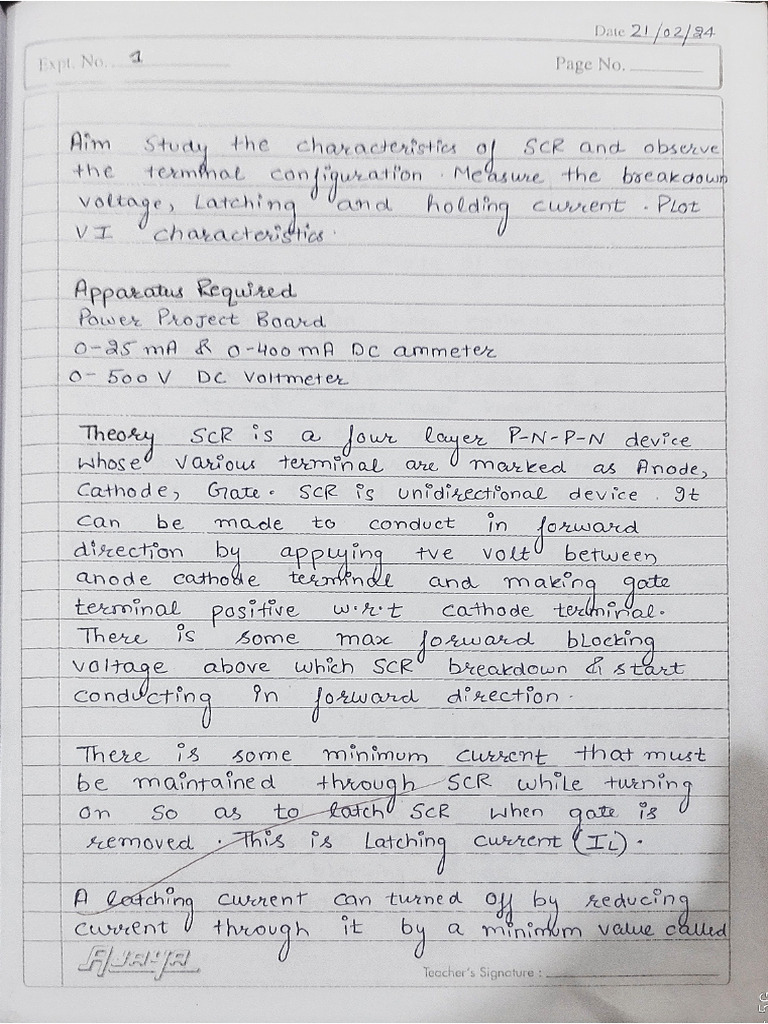 Date 21/02/24
Expt. No. 1
Page No.
Aim Study the characteristics of SCR and observe
the terminal configuration. Measure the breakdown
voltage, Latching and holding current. Plot
VI characteristics.
Apparatus Required
Power Project Board
0-25 mA & 0-400 mA DC ammeter
0-500 V DC Voltmeter
Theory SCR is a four layer P-N-P-N device
whose various terminal are marked as Anode,
Cathode, Gate. SCR is unidirectional device. It
can be made to conduct in forward
direction by applying +ve volt between
anode cathode terminal and making gate
terminal positive w.r.t cathode terminal.
There is some max forward blocking
voltage above which SCR breakdown & start
conducting in forward direction.
There is some minimum current that must
be maintained through SCR while turning
on so as to latch SCR when gate is
removed. This is Latching current (IL).
A latching current can turned off by reducing
current through it by a minimum value called
AJAYA
Teacher's Signature :